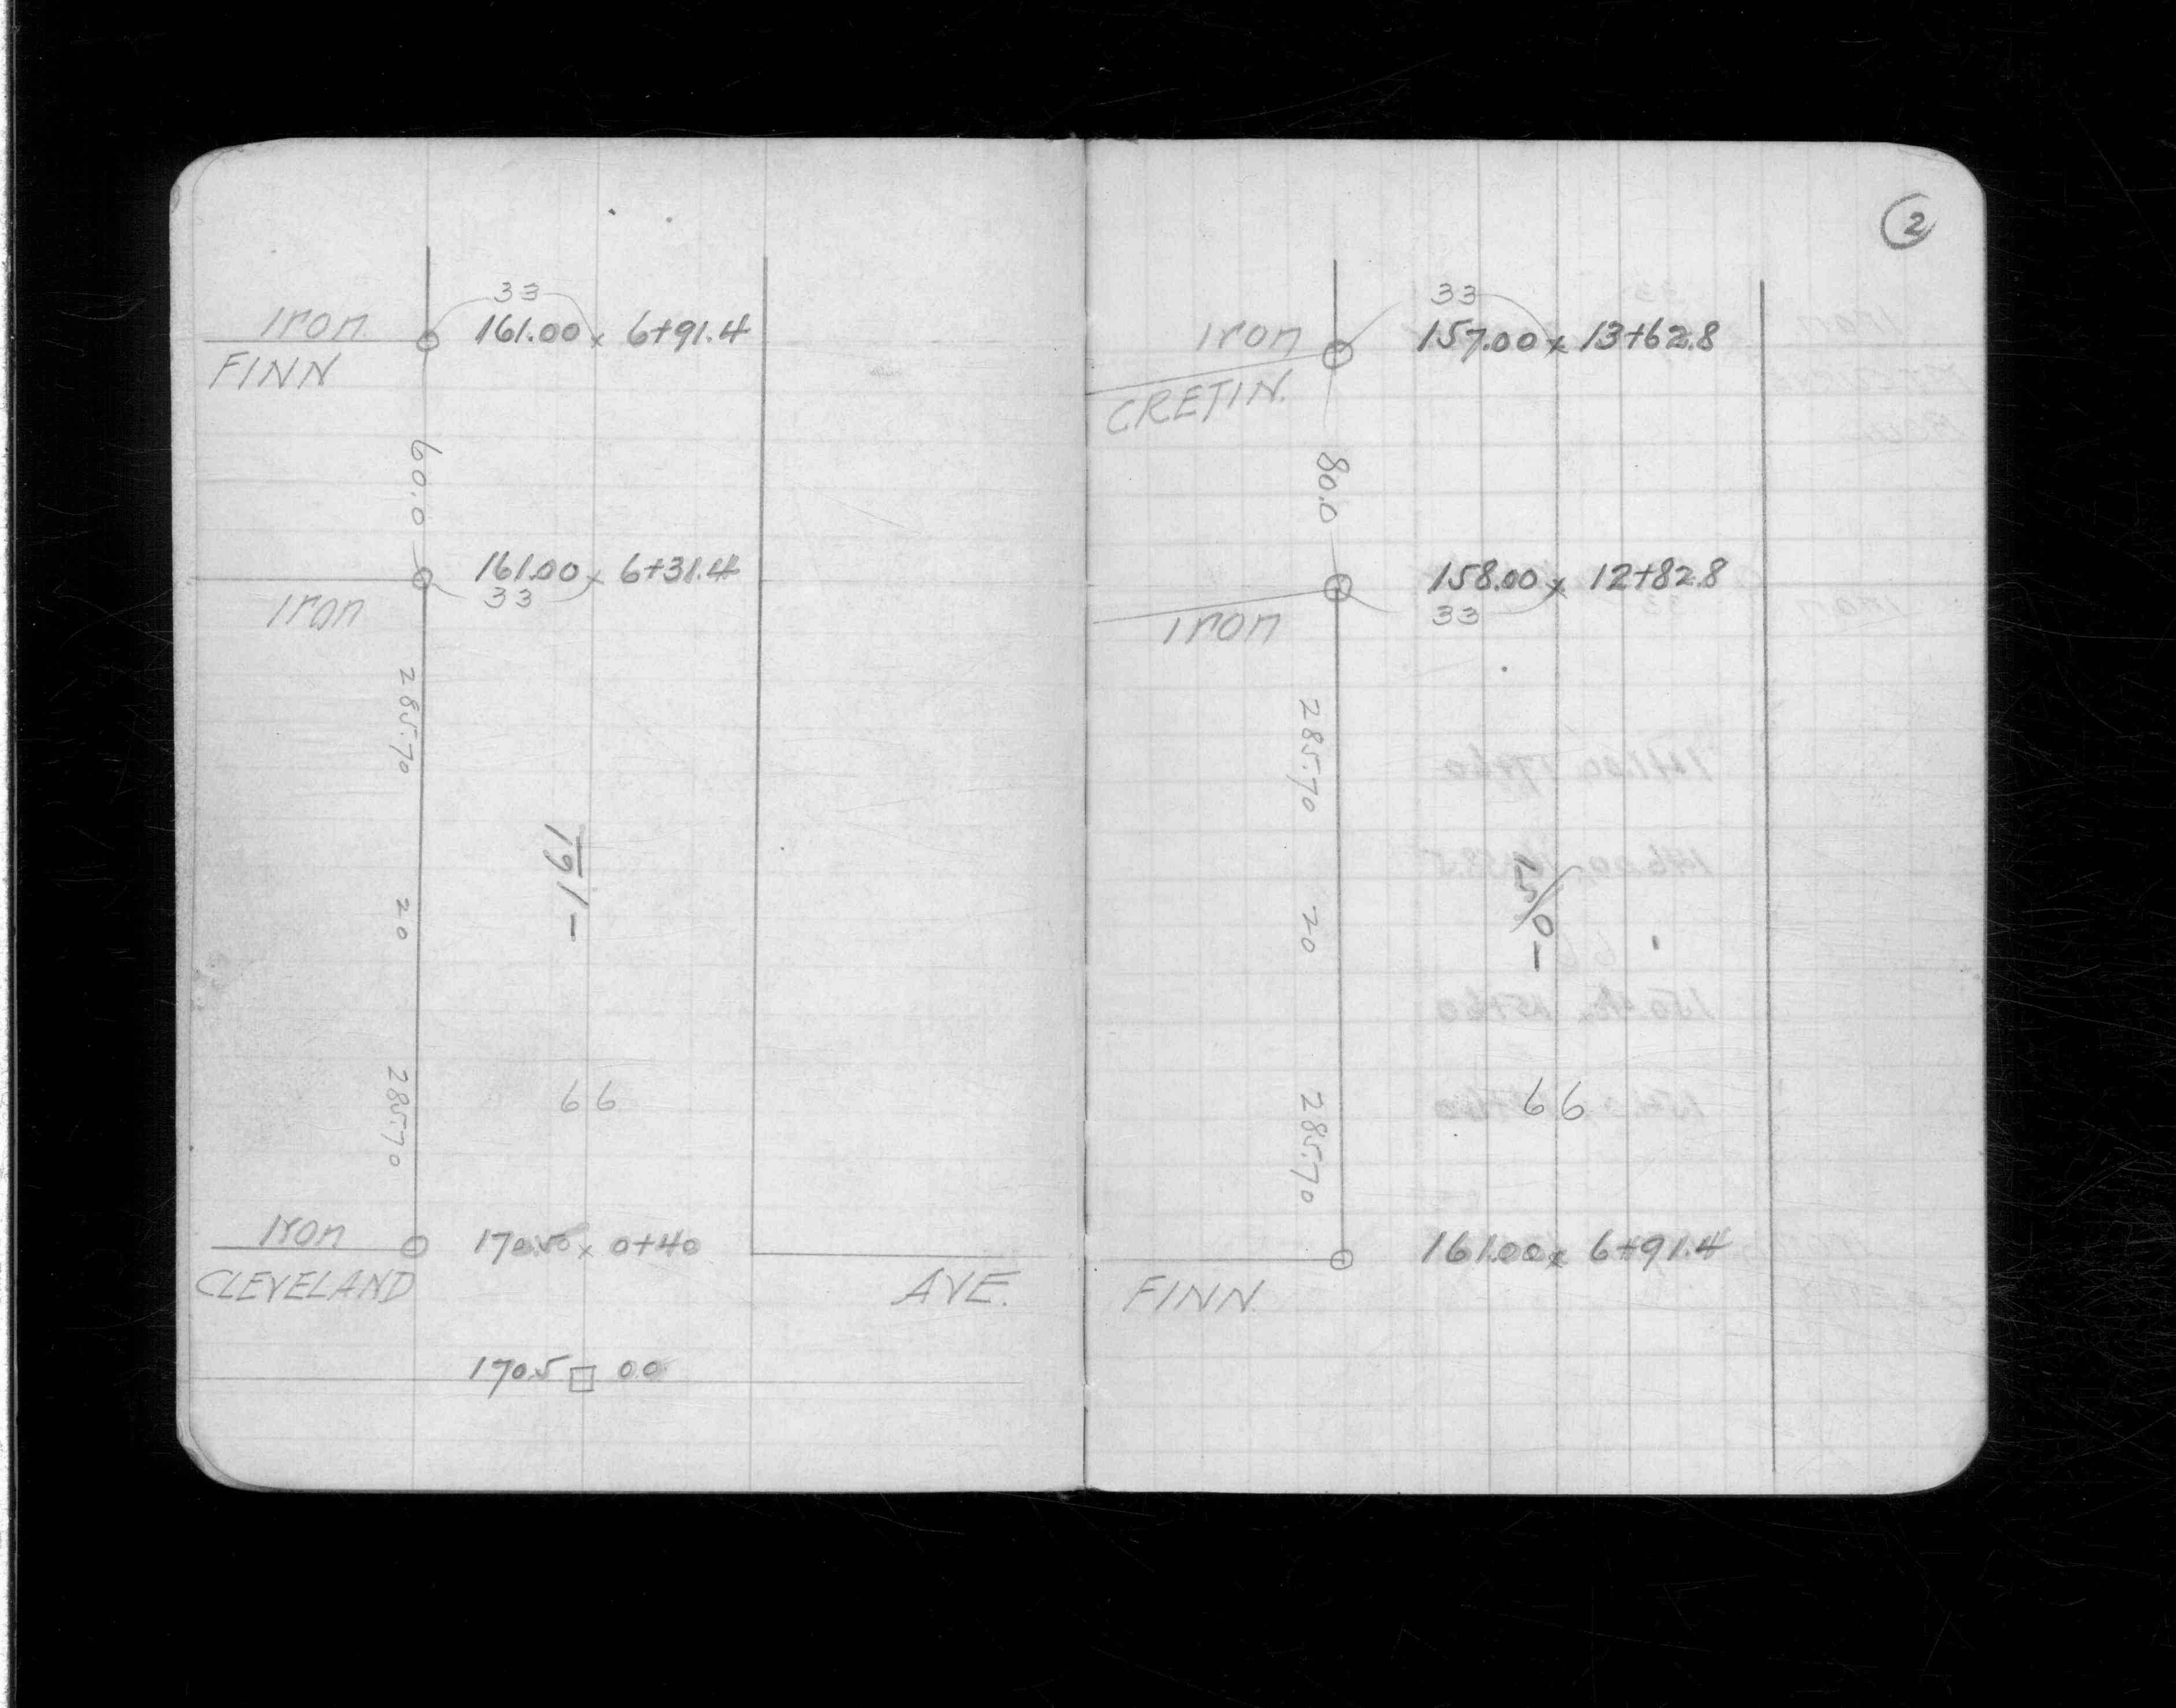 33
Iron 161.00 x 6+91.4
FINN
60.0
161.00 x 6+31.4
33
Iron
285.70
20
66
285.70
Iron 170.50 x 0+40
CLEVELAND AVE.
170.5 □ 00
2
33
Iron 157.00 x 13+62.8
CRETIN.
80.0
158.00 x 12+82.8
33
Iron
285.70
20
66
285.70
161.00 x 6+91.4
FINN